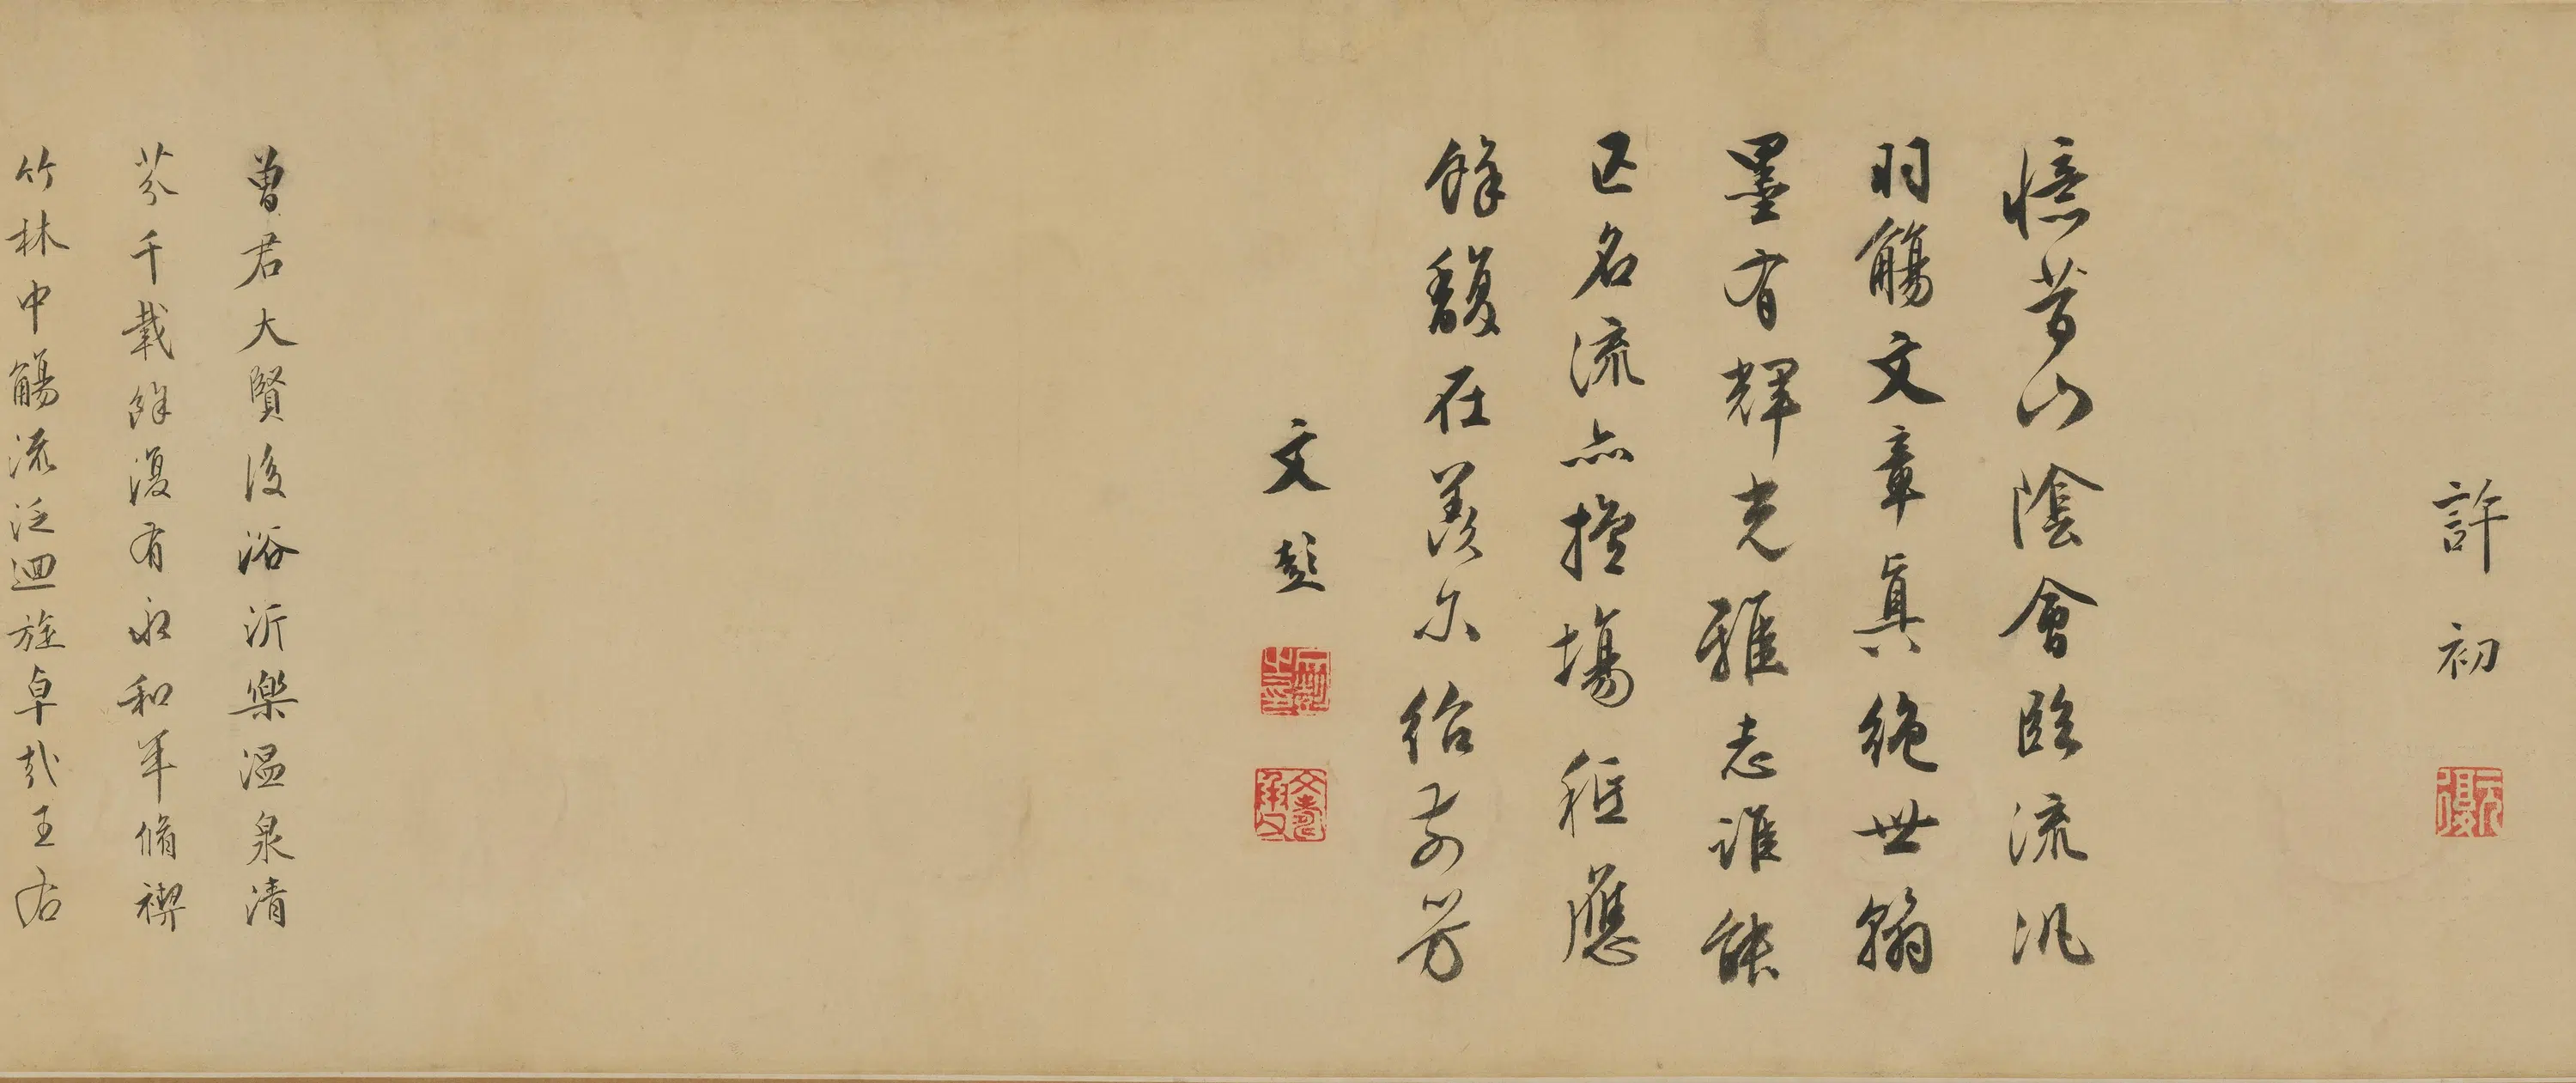 許初
憶昔山陰會臨流汎
羽觴文章真絕世翰
墨有輝光雅志誰能
匹名流亦擅場秪應
餘馥在羨尔紹前芳
文彭
曾君大賢後浴沂樂溫泉清
芬千載餘復有永和年脩禊
竹林中觴流泛迴旋卓哉王右